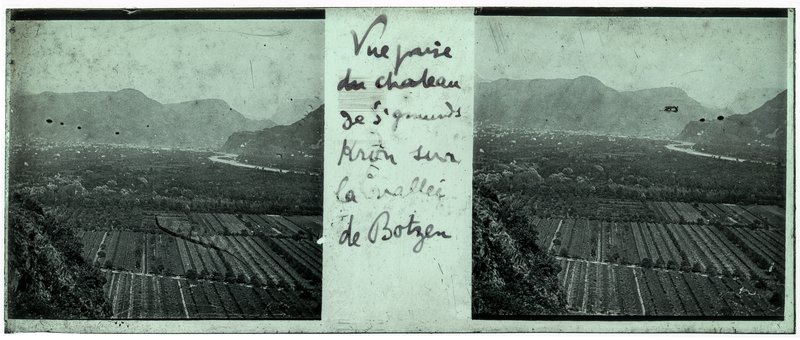 Vue prise
du chateau
de S'gmunds
Kron sur
la vallée
de Botzen